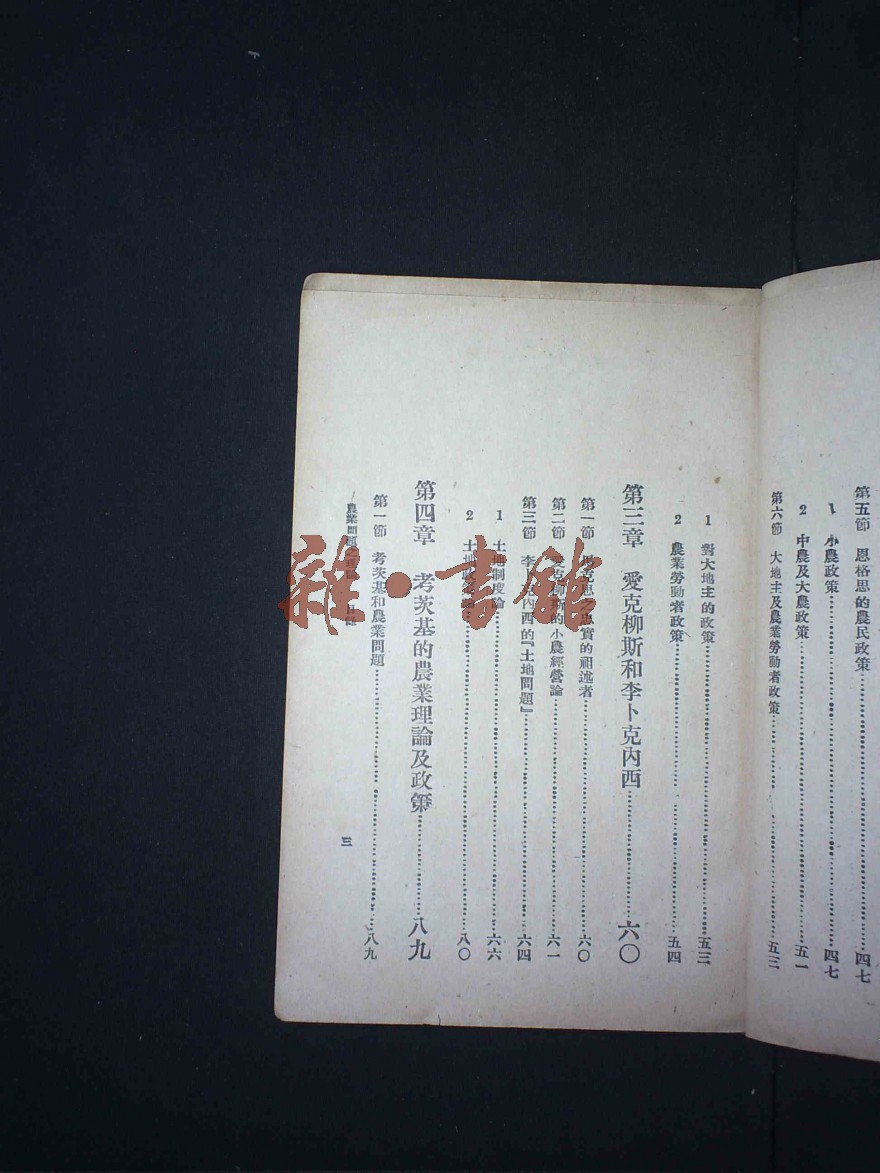 第五節 恩格思的農民政策……四七
1 小農政策……四七
2 中農及大農政策……五一
第六節 大地主及農業勞動者政策……五三
1 對大地主的政策……五三
2 農業勞動者政策……五四
第三章 愛克柳斯和李卜克內西……六〇
第一節 克思之忠實的祖述者……六〇
第二節 愛克柳斯的小農經營論……六一
第三節 李卜克內西的『土地問題』……六四
1 土地制度論……六六
2 土地政策論……八〇
第四章 考茨基的農業理論及政策……八九
第一節 考茨基和農業問題……八九
農業問題之 目錄
三
雜·書館